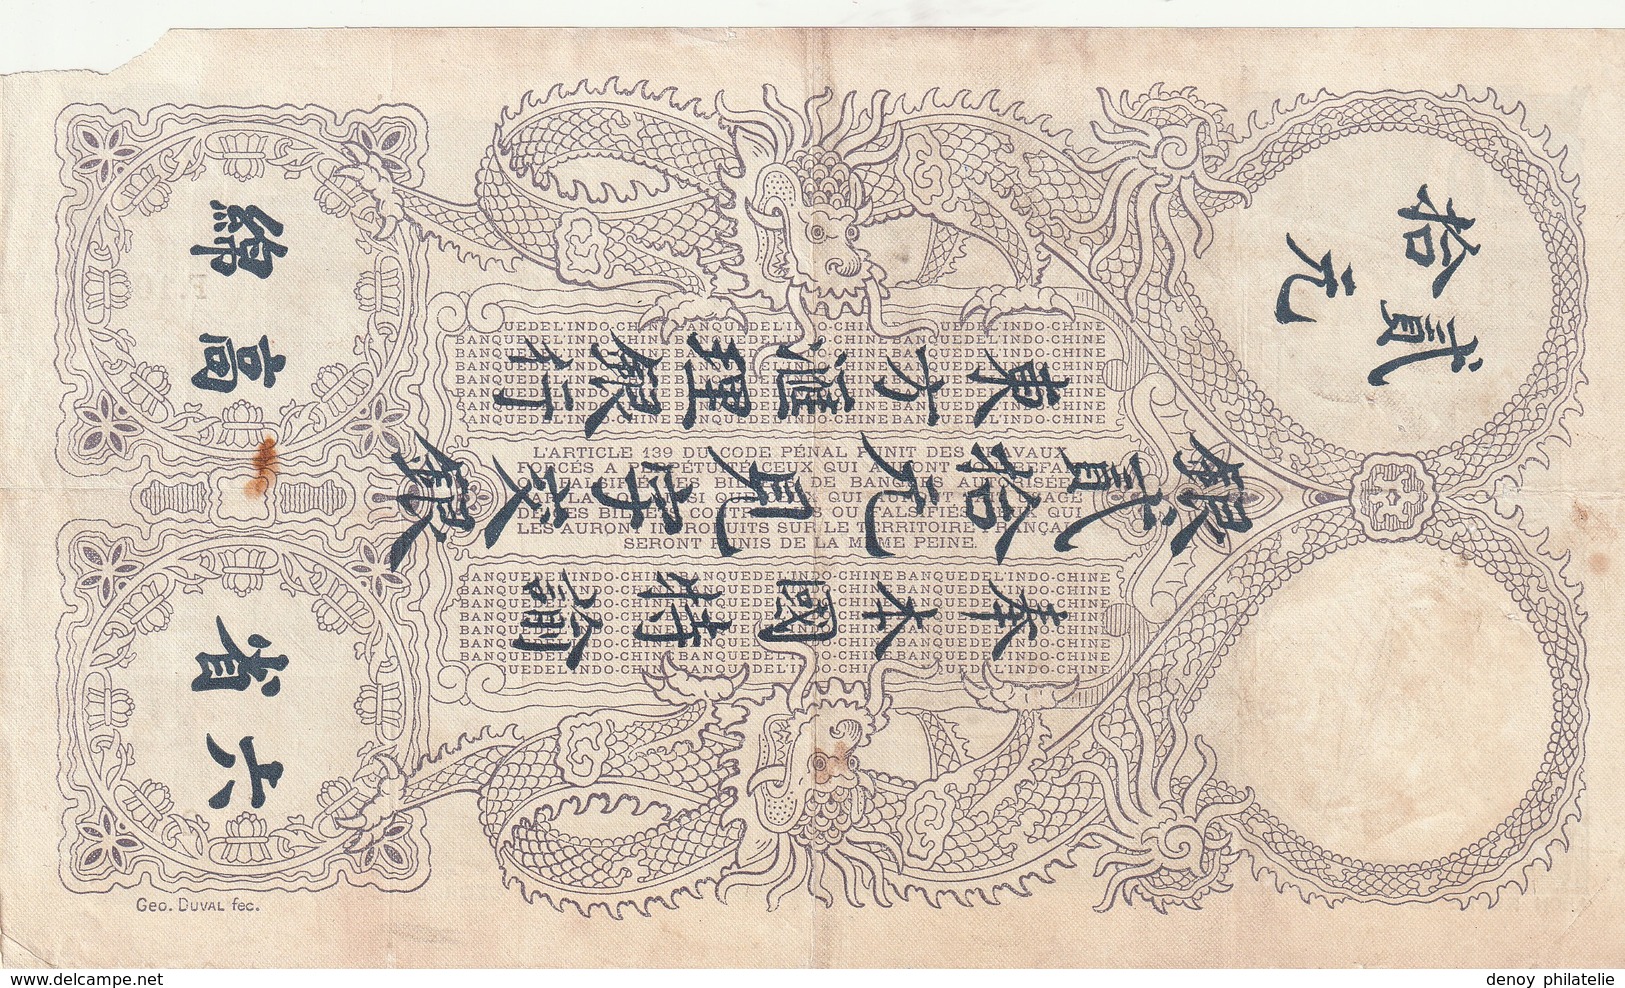 貳拾
元
奉本國特諭
銀貳拾元見字交銀
東方滙理銀行
六省
高綿
BANQUEDEL'INDO-CHINEBANQUEDEL'INDO-CHINEBANQUEDEL'INDO-CHINE
L'ARTICLE 139 DU CODE PÉNAL PUNIT DES TRAVAUX
FORCÉS A PERPÉTUITÉ CEUX QUI AURONT CONTREFAIT
OU FALSIFIÉ LES BILLETS DE BANQUES AUTORISÉES
PAR LA LOI, AINSI QUE CEUX QUI FONT USAGE
DE CES BILLETS CONTREFAITS OU FALSIFIÉS QUI
LES AURONT INTRODUITS SUR LE TERRITOIRE FRANÇAIS
SERONT PUNIS DE LA MÊME PEINE.
BANQUEDEL'INDO-CHINEBANQUEDEL'INDO-CHINEBANQUEDEL'INDO-CHINE
GEO. DUVAL fec.
www.delcampe.net
denoy philatelie